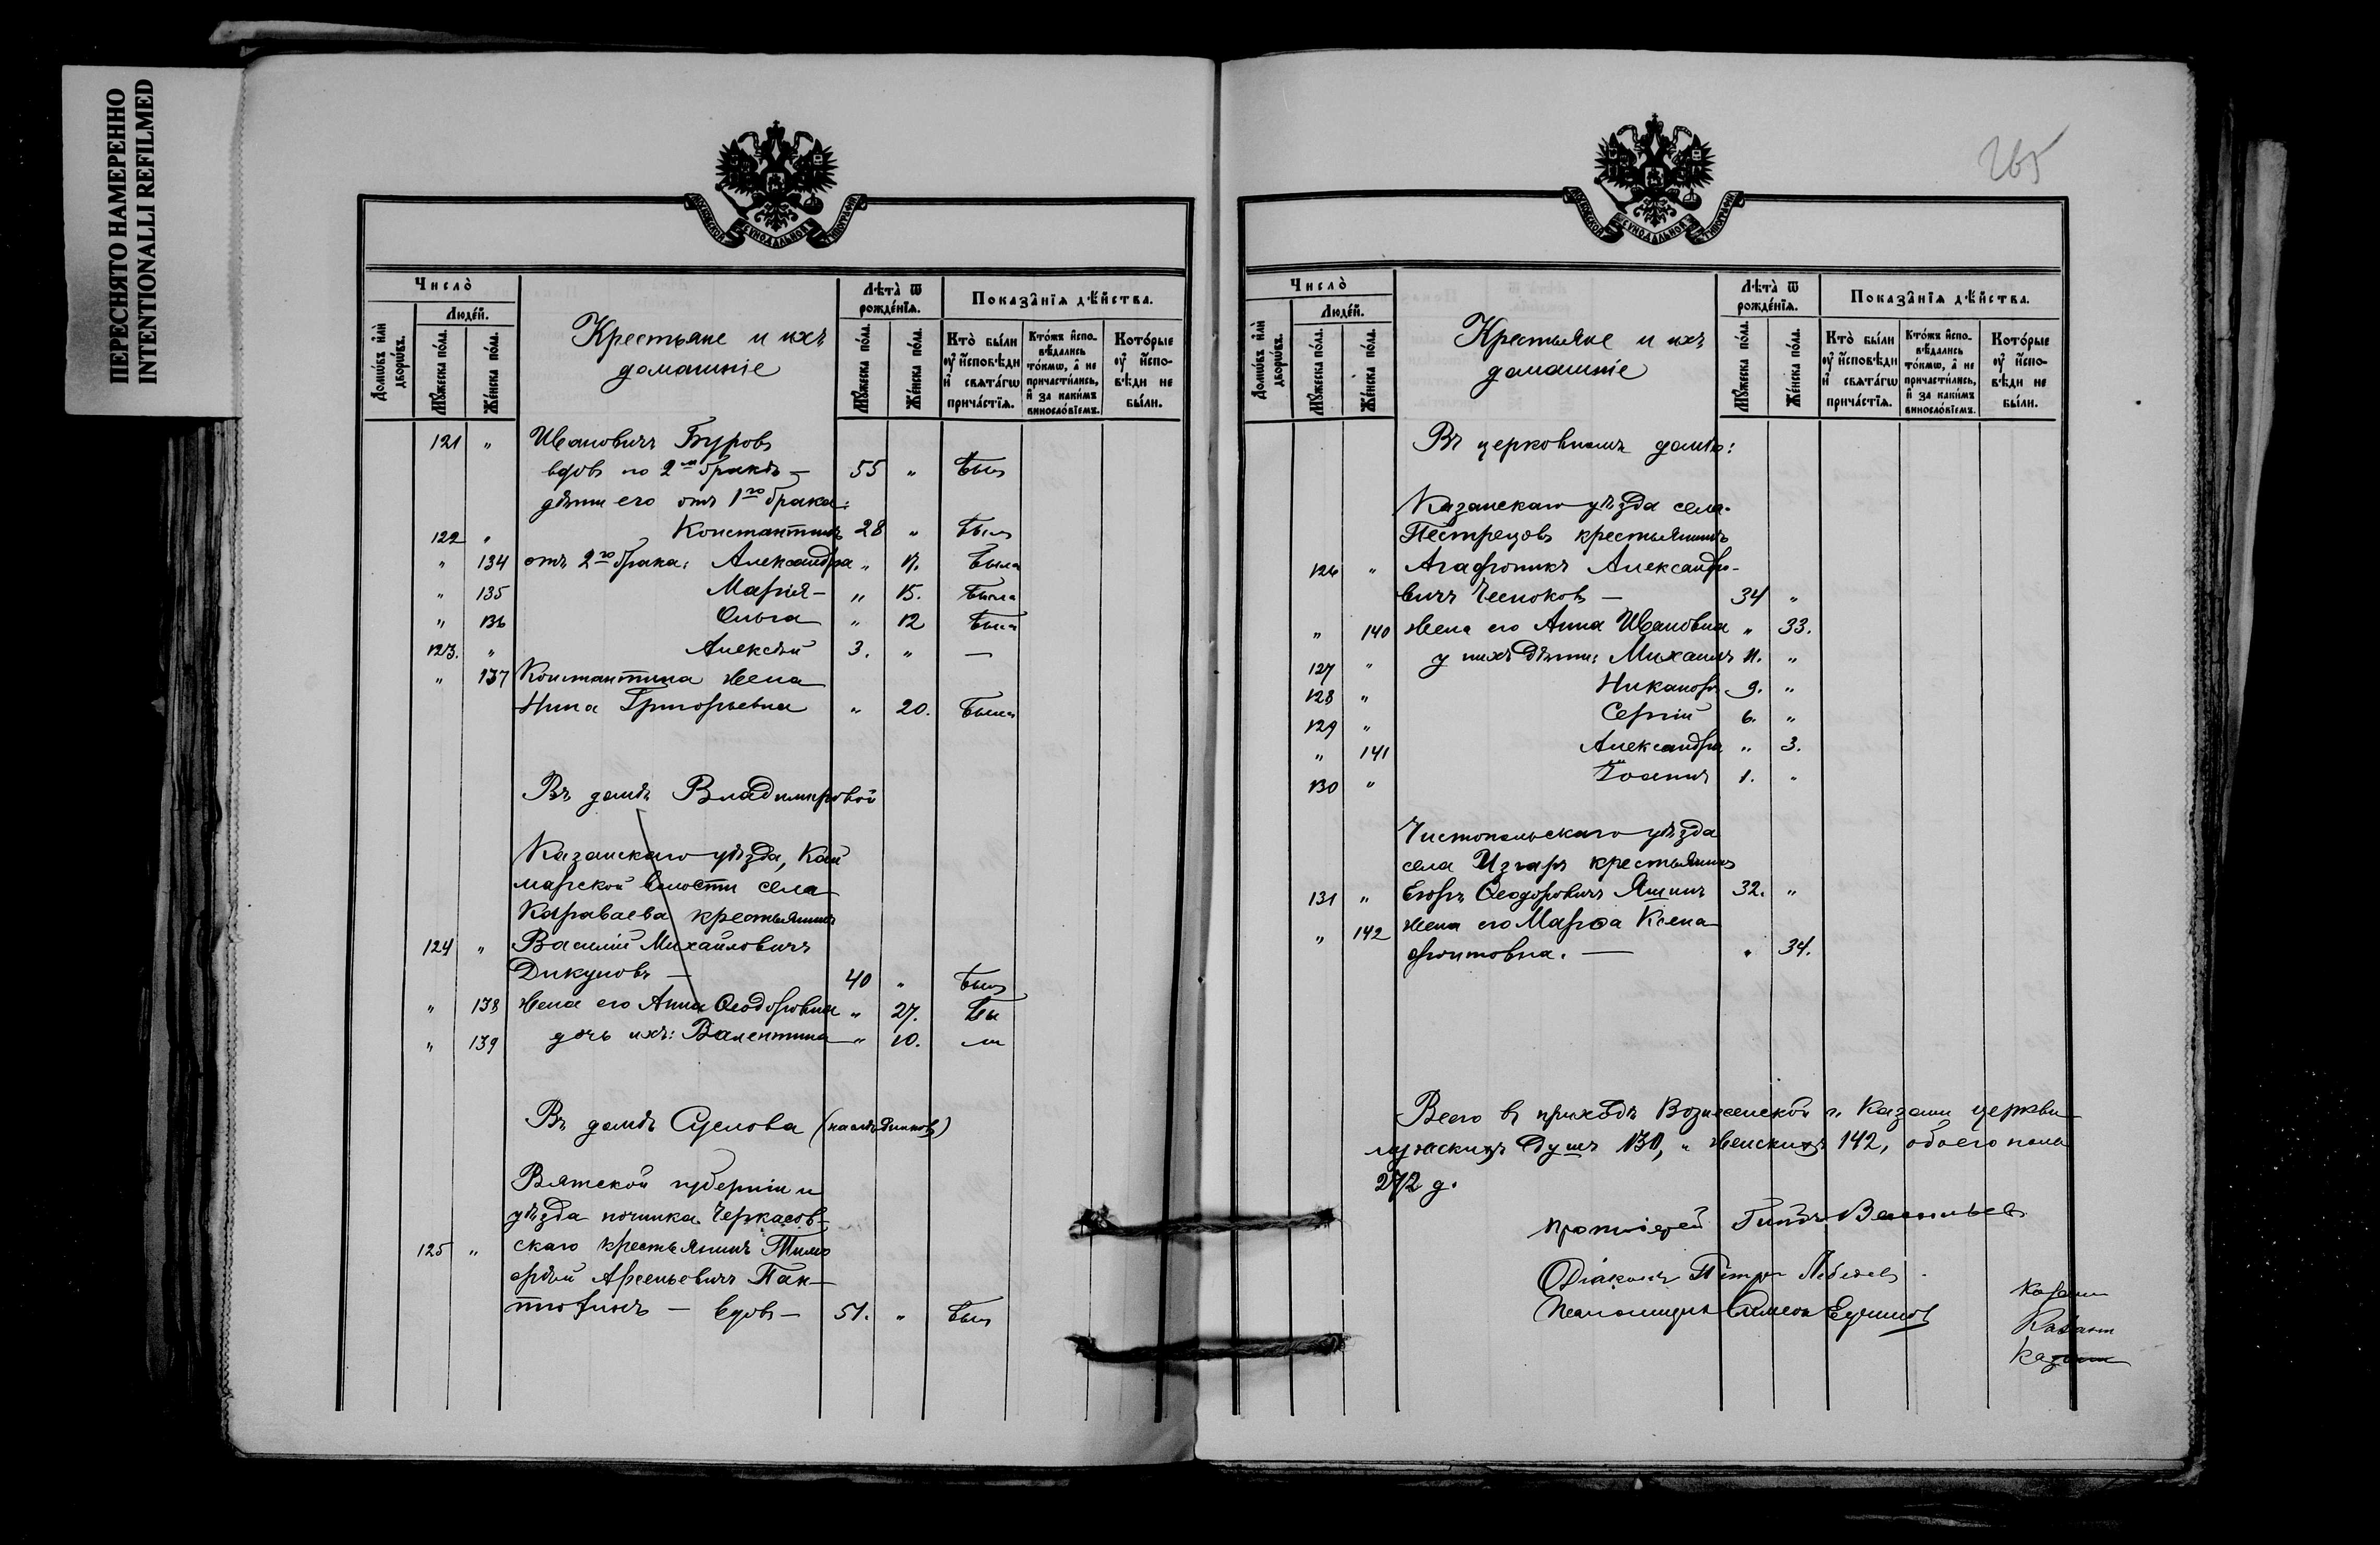 ПЕРЕСНЯТО НАМЕРЕННО
INTENTIONALLI REFILMED
МОСКОВСКОЙ СѴНОДАЛЬНОЙ ТИПОГРАФІИ
Число̀
Людéй.
Домѡвъ и҆лѝ дворѡвъ.
Мꙋ́жеска по́ла.
Же́нска по́ла.
Крестьяне и ихъ
домашніе
Лѣта̀ ѿ
рожде́нїѧ.
Мꙋ́жеска по́ла.
Же́нска по́ла.
Показа̑нїѧ дѣ́йства.
Кто̀ бы́ли
ᲂу҆ и҆сповѣ́ди
и҆ свѧта́гѡ
прича́стїѧ.
Кто́жъ и҆спо-
вѣ́дались
то́кмѡ, а҆ не
причасти́лись,
и҆ за каки́мъ
винослѡ́вїемъ.
Кото́рые
ᲂу҆ и҆спо-
вѣ́ди не
бы́ли.
121 " Ивановичъ Буровъ
вдовъ по 2м бракѣ — 55 " былъ
дѣти его отъ 1го брака:
122 " Константинъ 28 " былъ
" 134 отъ 2го брака: Александра " 17. была
" 135 Марія — " 15. была
" 136 Ольга " 12 была
123. " Алексѣй 3. " —
" 137 Константина жена
Нина Григорьевна " 20. была
Въ домѣ Владимировой
Казанскаго уѣзда, Кай
марской волости села
Караваева крестьянинъ
124 " Василій Михайловичъ
Дикуновъ — 40 " былъ
" 138 жена его Анна Ѳеодоровна " 27. Бы
" 139 дочь ихъ: Валентина — " 10. ли
Въ домѣ Суслова (наслѣдниковъ)
Вятской губерніи и
уѣзда починка Черкасов-
125 " скаго крестьянинъ Тимо
ѳей Арсеньевичъ Пак-
тюфинъ — вдовъ — 51. " былъ
265
МОСКОВСКОЙ СѴНОДАЛЬНОЙ ТИПОГРАФІИ
Число̀
Людéй.
Домѡвъ и҆лѝ дворѡвъ.
Мꙋ́жеска по́ла.
Же́нска по́ла.
Крестьяне и ихъ
домашніе
Лѣта̀ ѿ
рожде́нїѧ.
Мꙋ́жеска по́ла.
Же́нска по́ла.
Показа̑нїѧ дѣ́йства.
Кто̀ бы́ли
ᲂу҆ и҆сповѣ́ди
и҆ свѧта́гѡ
прича́стїѧ.
Кто́жъ и҆спо-
вѣ́дались
то́кмѡ, а҆ не
причасти́лись,
и҆ за каки́мъ
винослѡ́вїемъ.
Кото́рые
ᲂу҆ и҆спо-
вѣ́ди не
бы́ли.
Въ церковномъ домѣ:
Казанскаго уѣзда села
Пестрецовъ крестьянинъ
126 " Агафоникъ Александро-
вичъ Чесноковъ — 34 "
" 140 жена его Анна Ивановна " 33.
127 " у нихъ дѣти: Михаилъ 11. "
128 " Никаноръ 9. "
129 " Сергій 6. "
" 141 Александра " 3.
130 " Іоаннъ 1. "
Чистопольскаго уѣзда
села Изгаръ крестьянинъ
131 " Егоръ Ѳеодоровичъ Яшинъ 32. "
" 142 жена его Марѳа Ксено
фонтовна. — " 34.
Всего въ приходѣ Вознесенской г. Казани церкви
мужскихъ душъ 130, " женскихъ 142, обоего пола
272 д.
Протоіерей Васильевъ
Діаконъ Петръ Лебедевъ
Псаломщикъ Симеон
Казани
Казани
Казани